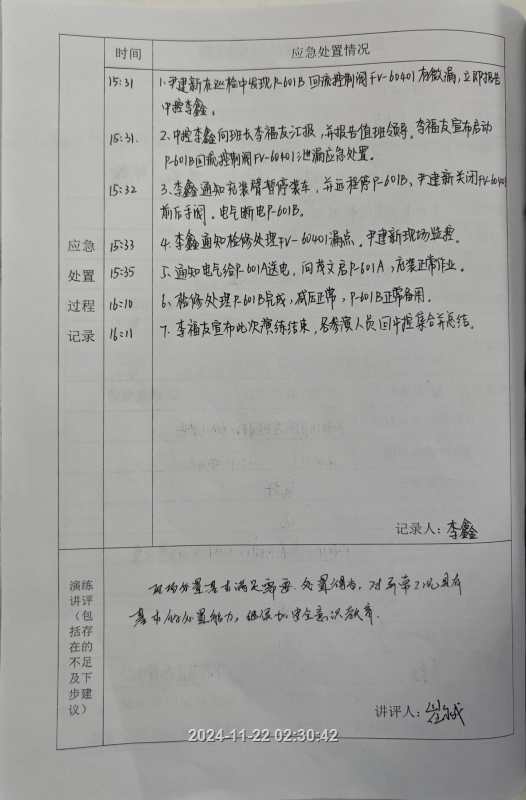 时间 应急处置情况
15:31 1、尹建新在巡检中发现P-601B回流控制阀FV-60401有微漏，立即报告
中控李鑫。
15:31. 2、中控李鑫向班长李福友汇报，并报告值班领导。李福友宣布启动
P-601B回流控制阀FV-60401泄漏应急处置。
15:32 3、李鑫通知充装臂暂停装车，并远程停P-601B，尹建新关闭FV-60401
前后手阀。电气断电P-601B。
15:33 4、李鑫通知检修处理FV-60401漏点。尹建新现场监控。
15:35 5、通知电气给P-601A送电，闫茂文启P-601A，充装正常作业。
16:10 6、检修处理P-601B完成，试后正常，P-601B正常备用。
16:11 7、李福友宣布此次演练结束，各参演人员回中控集合并总结。
应急
处置
过程
记录
记录人：李鑫
演练
讲评
（包
括存
在的
不足
及下
步建
议）
现场处置基本满足需要、处置得当，对异常工况具有
基本的处置能力，继续加安全意识教育.
讲评人：
2024-11-22 02:30:42